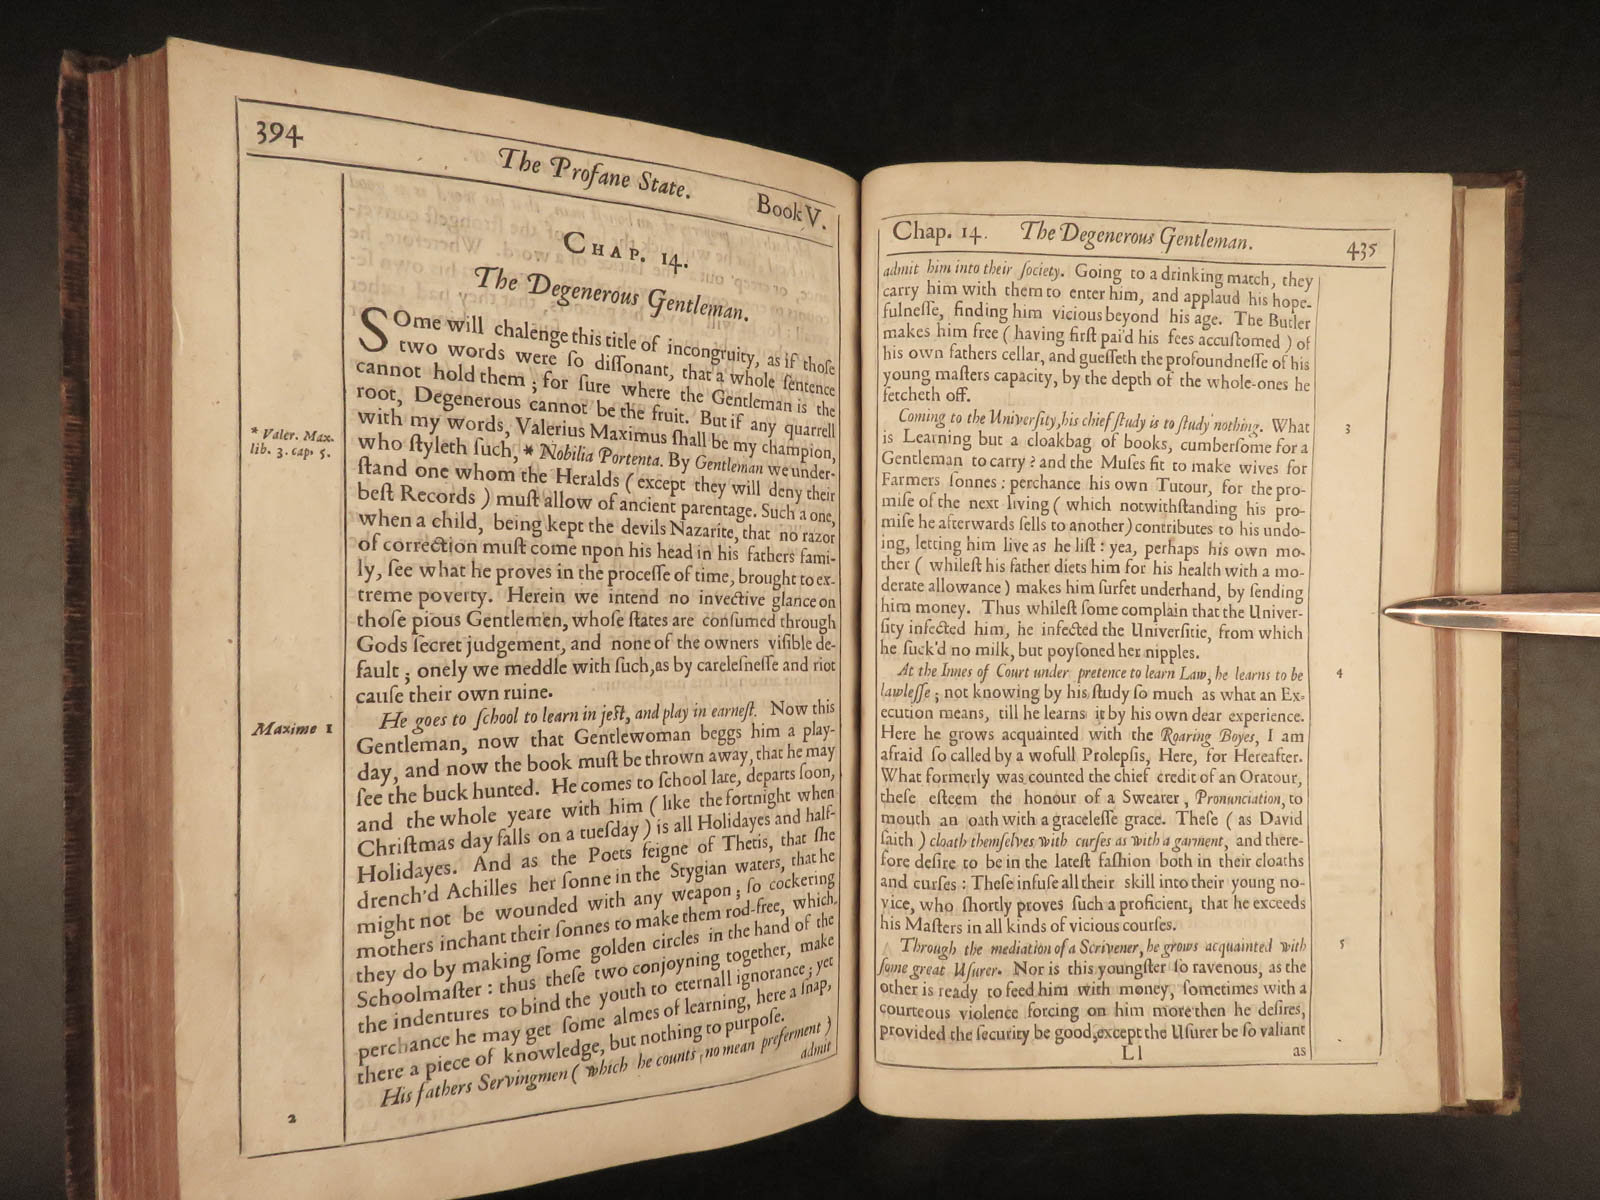 394
The Profane State.
Book V.
CHAP. 14.
The Degenerous Gentleman.
SOme will chalenge this title of incongruity, as if thoſe
two words were ſo diſſonant, that a whole ſentence
cannot hold them; for ſure where the Gentleman is the
root, Degenerous cannot be the fruit. But if any quarrell
with my words, Valerius Maximus ſhall be my champion,
* Valer. Max.
lib. 3. cap. 5.
who ſtyleth ſuch, * Nobilia Portenta. By Gentleman we under-
ſtand one whom the Heralds (except they will deny their
beſt Records) muſt allow of ancient parentage. Such a one,
when a child, being kept the devils Nazarite, that no razor
of correction muſt come npon his head in his fathers fami-
ly, ſee what he proves in the proceſſe of time, brought to ex-
treme poverty. Herein we intend no invective glance on
thoſe pious Gentlemen, whoſe ſtates are conſumed through
Gods ſecret judgement, and none of the owners viſible de-
fault; onely we meddle with ſuch, as by careleſneſſe and riot
cauſe their own ruine.
Maxime 1
He goes to ſchool to learn in jeſt, and play in earneſt. Now this
Gentleman, now that Gentlewoman beggs him a play-
day, and now the book muſt be thrown away, that he may
ſee the buck hunted. He comes to ſchool late, departs ſoon,
and the whole yeare with him (like the fortnight when
Chriſtmas day falls on a tueſday) is all Holidayes and half-
Holidayes. And as the Poets feigne of Thetis, that ſhe
drench'd Achilles her ſonne in the Stygian waters, that he
might not be wounded with any weapon; ſo cockering
mothers inchant their ſonnes to make them rod-free, which
they do by making ſome golden circles in the hand of the
Schoolmaſter: thus theſe two conjoyning together, make
the indentures to bind the youth to eternall ignorance; yet
perchance he may get ſome almes of learning, here a ſnap,
there a piece of knowledge, but nothing to purpoſe.
2
His fathers Servingmen (which he counts no mean preferment)
admit
Chap. 14.
The Degenerous Gentleman.
435
admit him into their ſociety. Going to a drinking match, they
carry him with them to enter him, and applaud his hope-
fulneſſe, finding him vicious beyond his age. The Butler
makes him free (having firſt paid his fees accuſtomed) of
his own fathers cellar, and gueſſeth the profoundneſſe of his
young maſters capacity, by the depth of the whole-ones he
fetcheth off.
Coming to the Univerſity, his chief ſtudy is to ſtudy nothing. What
3
is Learning but a cloakbag of books, cumberſome for a
Gentleman to carry? and the Muſes fit to make wives for
Farmers ſonnes: perchance his own Tutour, for the pro-
miſe of the next living (which notwithſtanding his pro-
miſe he afterwards ſells to another) contributes to his undo-
ing, letting him live as he liſt: yea, perhaps his own mo-
ther (whileſt his father diets him for his health with a mo-
derate allowance) makes him ſurfet underhand, by ſending
him money. Thus whileſt ſome complain that the Univer-
ſity infected him, he infected the Univerſitie, from which
he ſuck'd no milk, but poyſoned her nipples.
At the Innes of Court under pretence to learn Law, he learns to be
4
lawleſſe; not knowing by his ſtudy ſo much as what an Ex-
ecution means, till he learns it by his own dear experience.
Here he grows acquainted with the Roaring Boyes, I am
afraid ſo called by a wofull Prolepſis, Here, for Hereafter.
What formerly was counted the chief credit of an Oratour,
theſe eſteem the honour of a Swearer, Pronunciation, to
mouth an oath with a graceleſſe grace. Theſe (as David
ſaith) cloath themſelves with curſes as with a garment, and there-
fore deſire to be in the lateſt faſhion both in their cloaths
and curſes: Theſe infuſe all their skill into their young no-
vice, who ſhortly proves ſuch a proficient, that he exceeds
his Maſters in all kinds of vicious courſes.
Through the mediation of a Scrivener, he grows acquainted with
5
ſome great Uſurer. Nor is this youngſter ſo ravenous, as the
other is ready to feed him with money, ſometimes with a
courteous violence forcing on him more then he deſires,
provided the ſecurity be good, except the Uſurer be ſo valiant
Ll
as